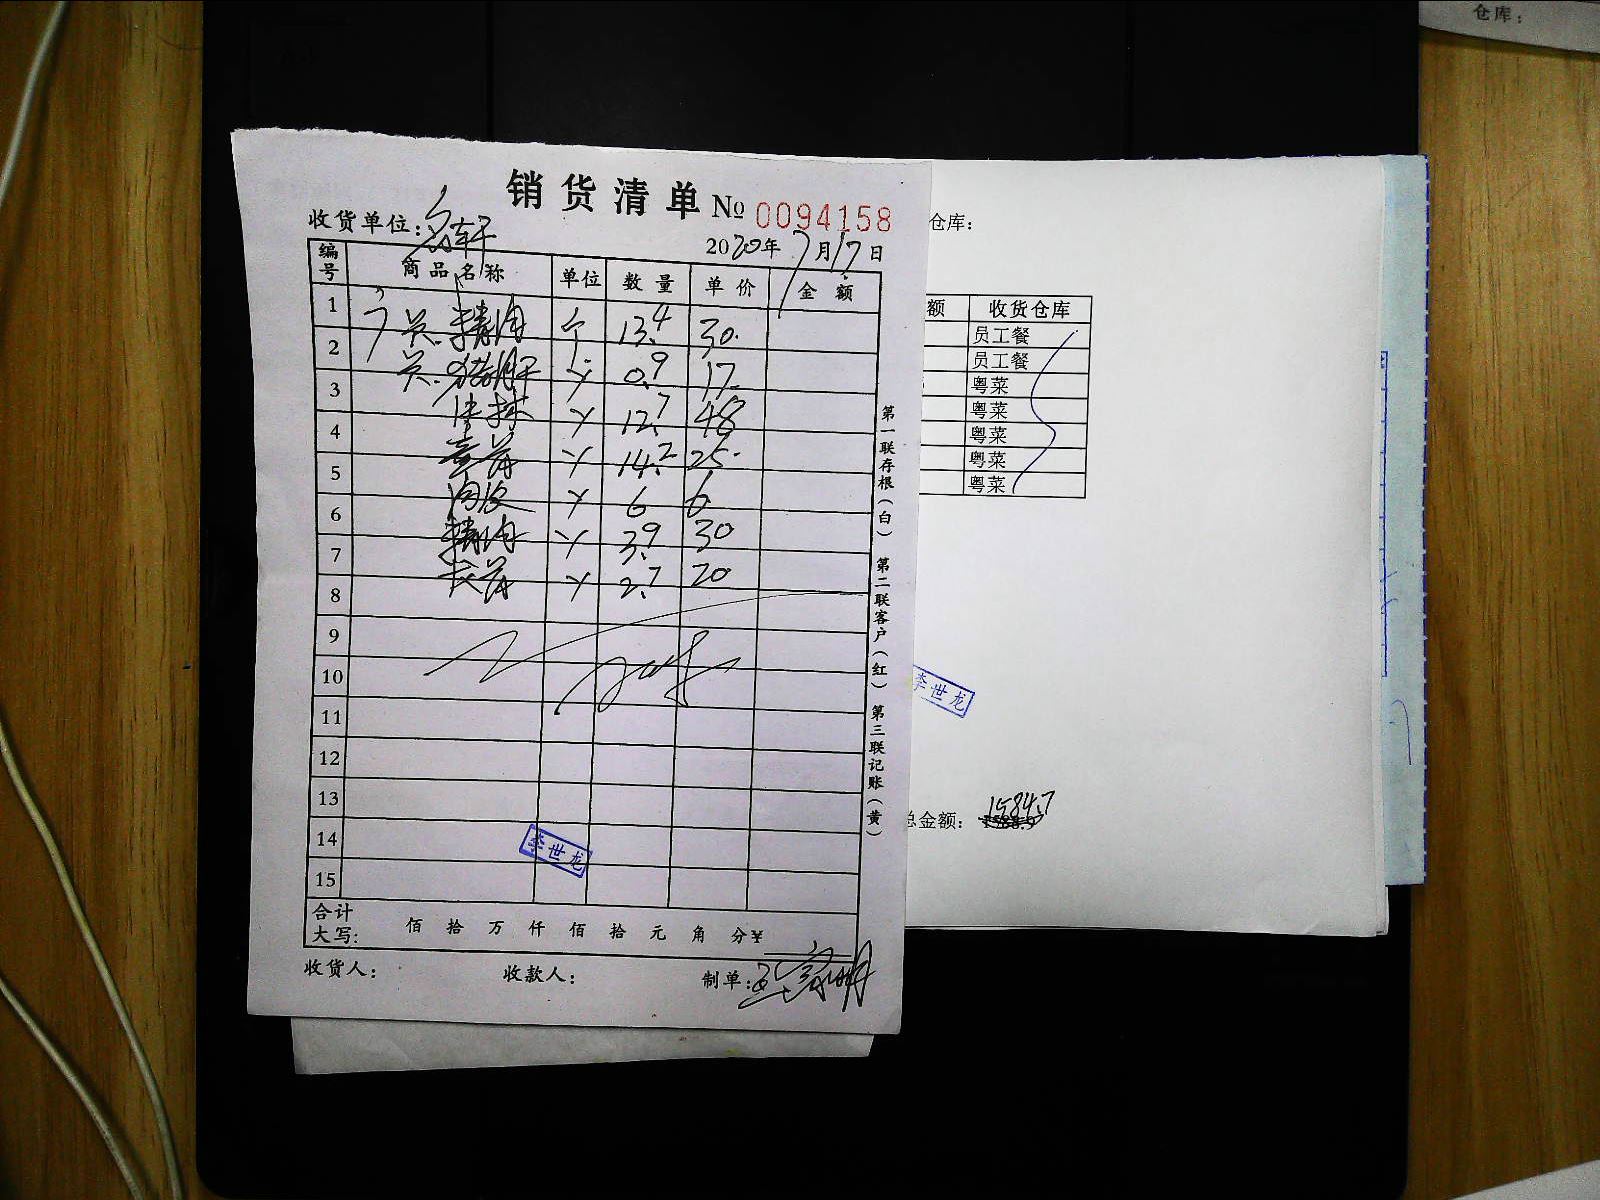 仓库：
销货清单 № 0094158
收货单位：名轩
2020年7月17日
编号 商品名称 单位 数量 单价 金额
1 精肉 个 13.4 30.
2 猪肝 丫 0.9 17.
3 丫 12.7 48
4 丫 14.2 25.
5 肉皮 丫 6 6
6 精肉 丫 3.9 30
7 丫 2.7 20
8
9
10
11
12
13
14
15
李世龙
合计
大写： 佰 拾 万 仟 佰 拾 元 角 分¥
收货人： 收款人： 制单：
第一联存根（白） 第二联客户（红） 第三联记账（黄）
仓库：
额 收货仓库
员工餐
员工餐
粤菜
粤菜
粤菜
粤菜
粤菜
李世龙
总金额： 1584.7